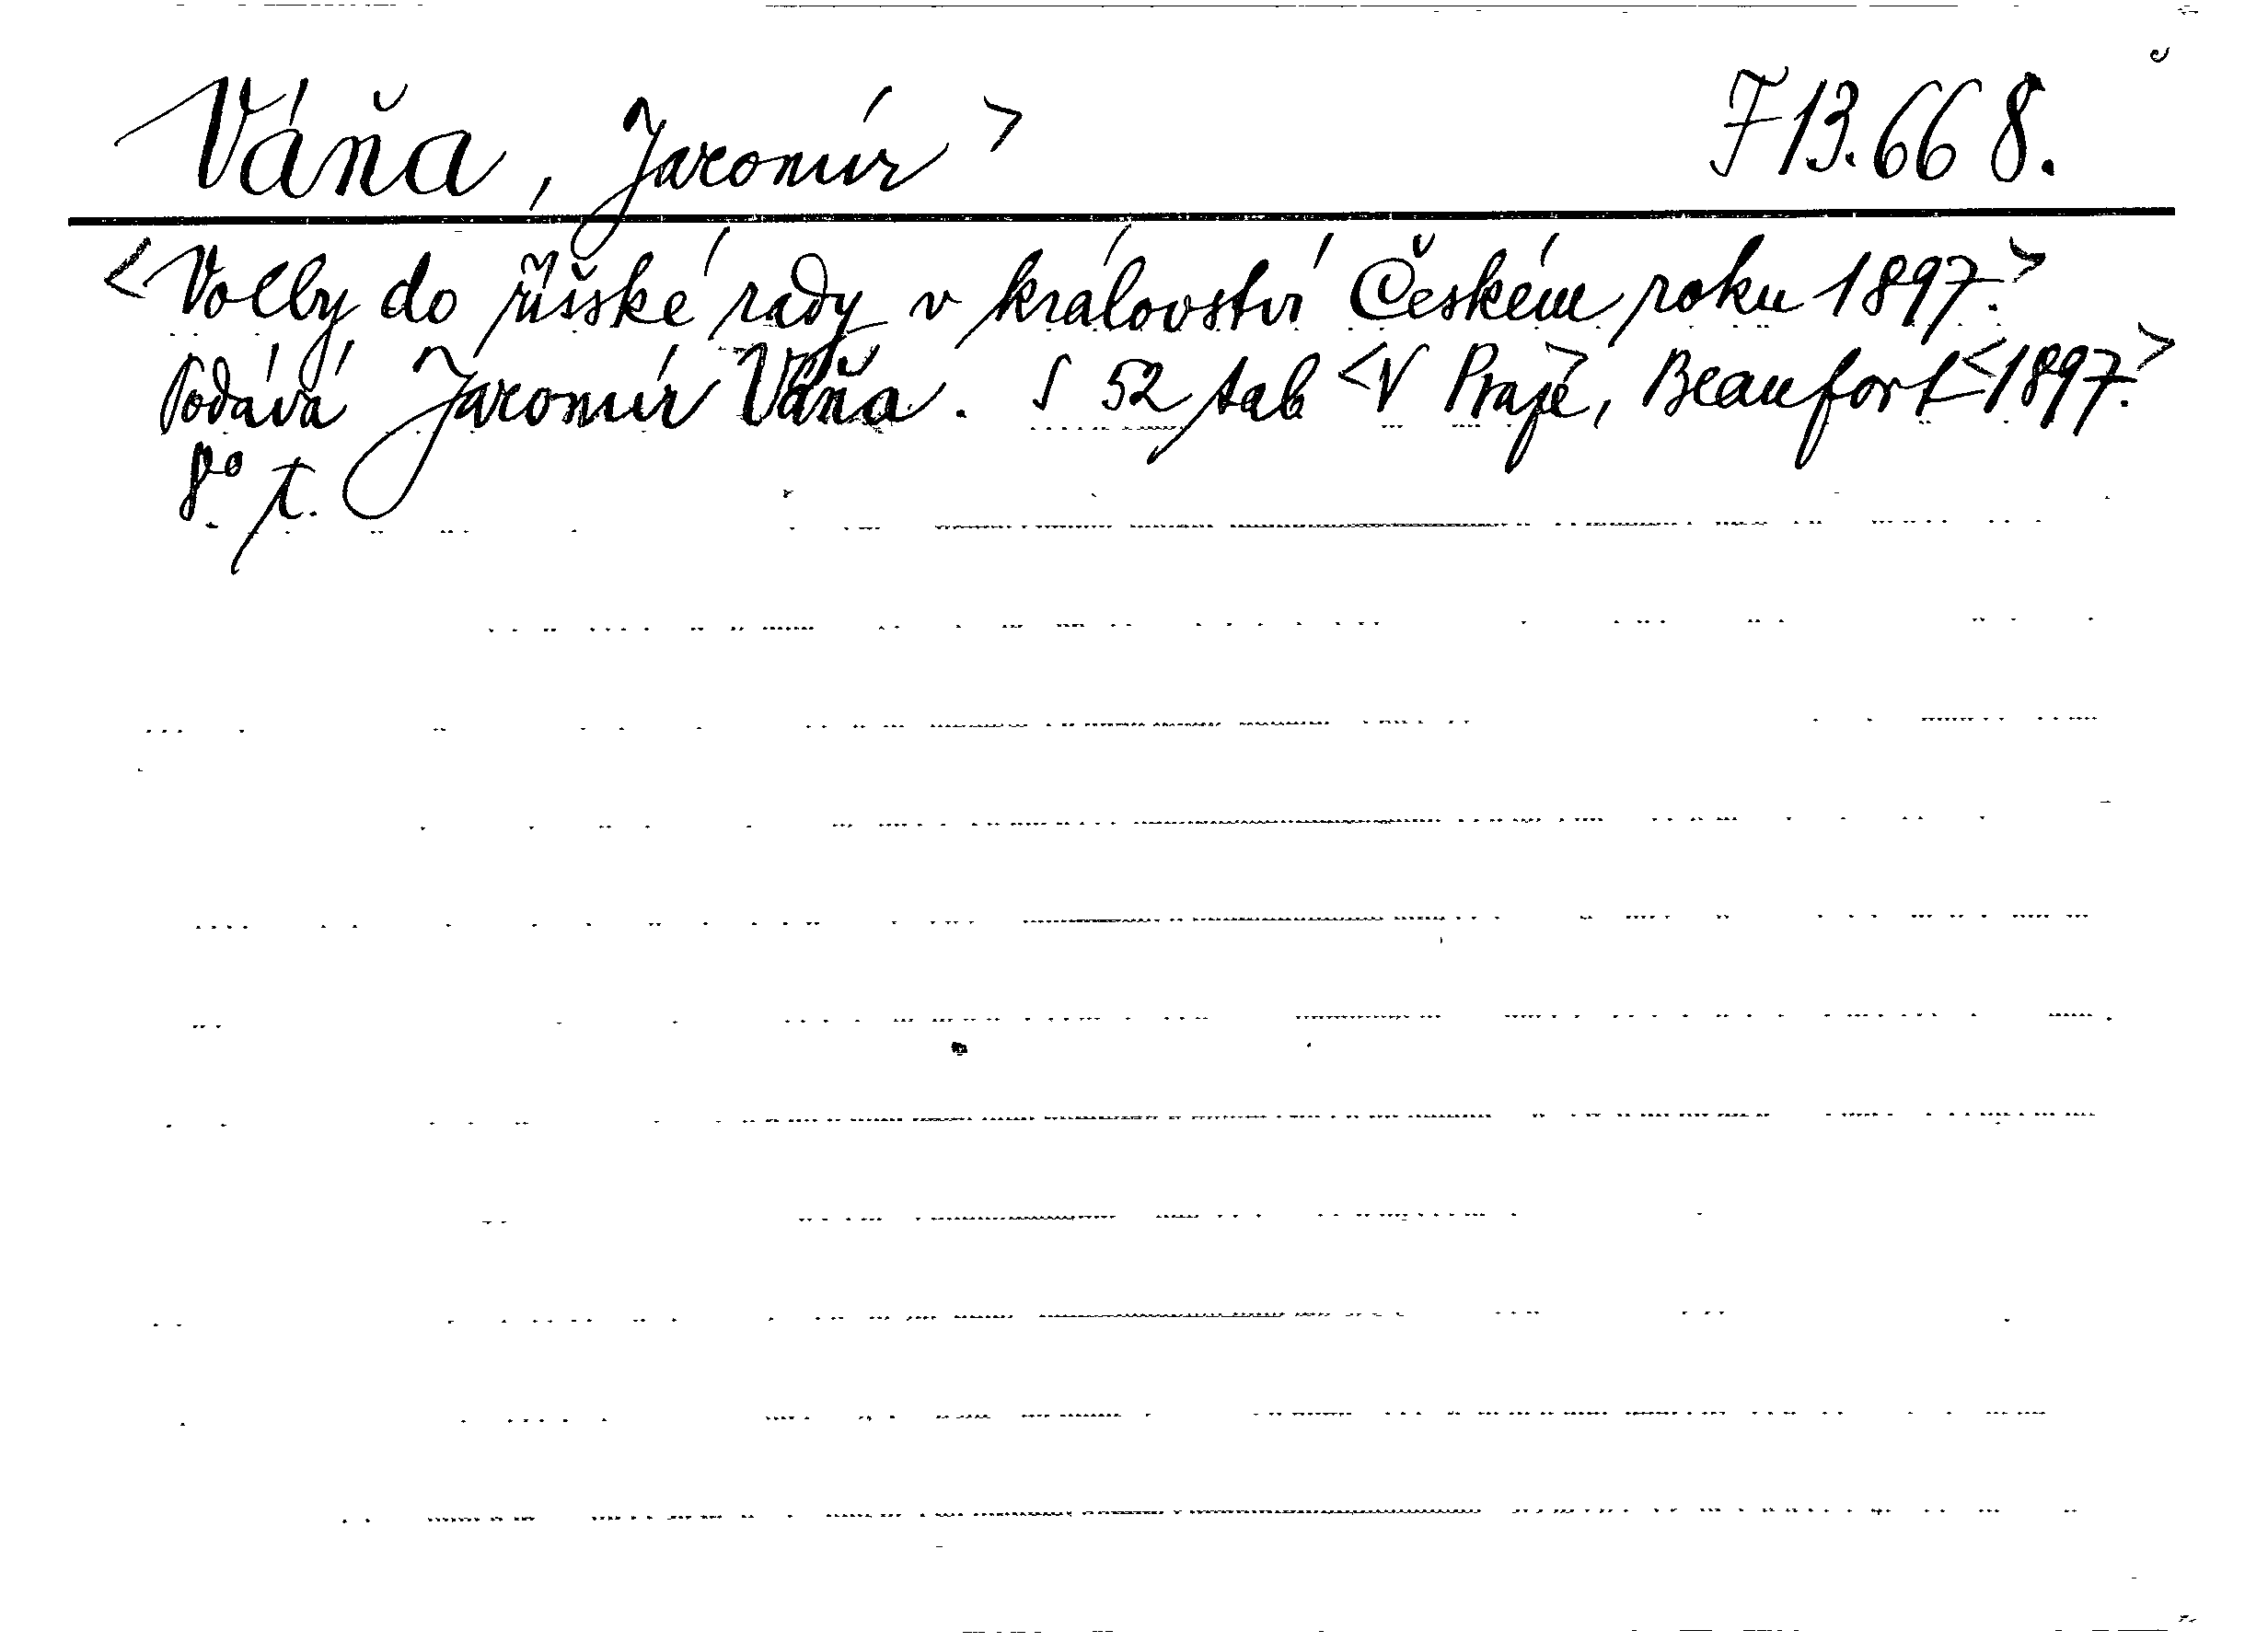 Váňa, Jaromír > F 13.668.
<Volby do říšské rady v království Českém roku 1897.>
Podává Jaromír Váňa. S 52 tab <V Praze,> Beaufort <1897.>
8° p.